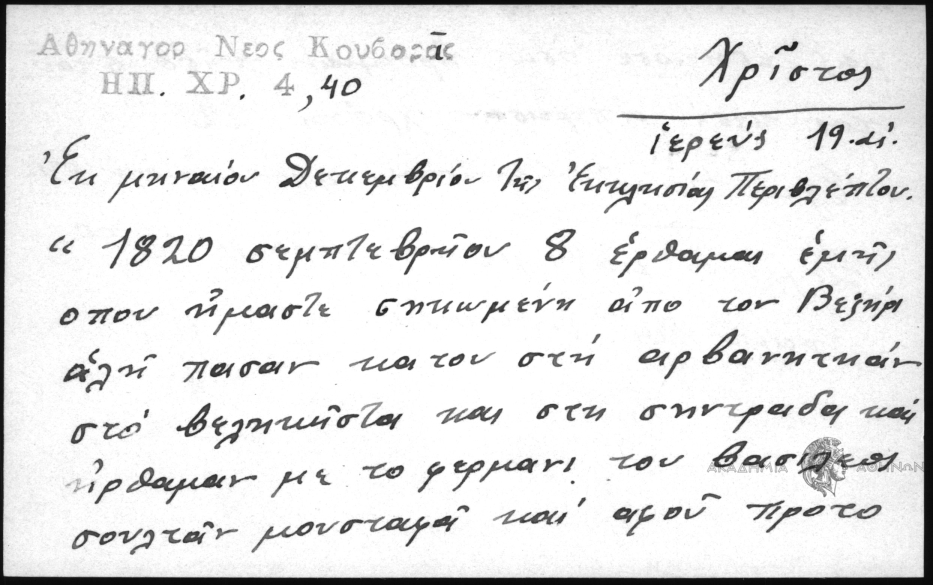 Αθηναγορ Νεος Κουβαρᾶς
ΗΠ. ΧΡ. 4, 40
Χρῖστος
ἱερεύς 19. αἰ.
Ἐκ μηναίου Δεκεμβρίου τῆς Ἐκκλησίας Περιβλέπτου.
“ 1820 σεμπτεβρῆου 8 ἐρθαμαι ἐμῆς
οπου ἤμαστε σηκωμένη ἀπο τον Βεζήρ
ἀλῆ πασαν κατου στή αρβανητηάν
στό βεληκῆστα και στη σηντραδα καί
ἠρθαμαν με το φερμανι του βασιλεος
σουλτᾶν μουσταφᾶ καί αφοῦ προτο
ΑΚΑΔΗΜΙΑ ΑΘΗΝΩΝ